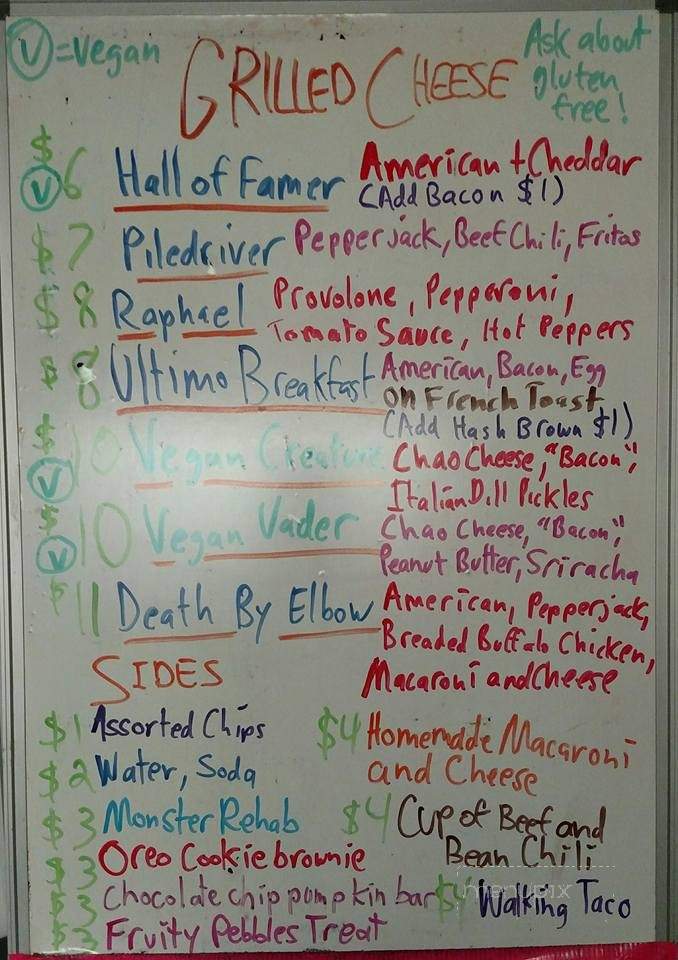 V = Vegan
GRILLED CHEESE
Ask about
gluten
free!
$6 V Hall of Famer American + Cheddar
(Add Bacon $1)
$7 Piledriver Pepperjack, Beef Chili, Fritos
$8 Raphael Provolone, Pepperoni,
Tomato Sauce, Hot Peppers
$8 Ultimo Breakfast American, Bacon, Egg
on French Toast
(Add Hash Brown $1)
$10 V Vegan Creature Chao Cheese, "Bacon",
Italian Dill Pickles
$10 V Vegan Vader Chao Cheese, "Bacon",
Peanut Butter, Sriracha
$11 Death By Elbow American, Pepperjack,
Breaded Buffalo Chicken,
Macaroni and Cheese
SIDES
$1 Assorted Chips
$2 Water, Soda
$3 Monster Rehab
$3 Oreo Cookie brownie
$3 Chocolate chip pumpkin bars
$3 Fruity Pebbles Treat
$4 Homemade Macaroni
and Cheese
$4 Cup of Beef and
Bean Chili
$4 Walking Taco
menupix